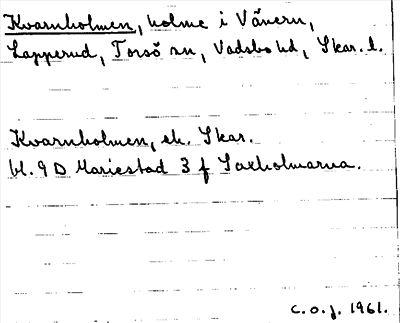 Kvarnholmen, holme i Vänern,
Lapperud, Torsö sn, Vadsbo hd, Skar. l.
Kvarnholmen, ek. Skar.
bl. 9 D Mariestad 3 f Saxholmarna.
C.O.J. 1961.